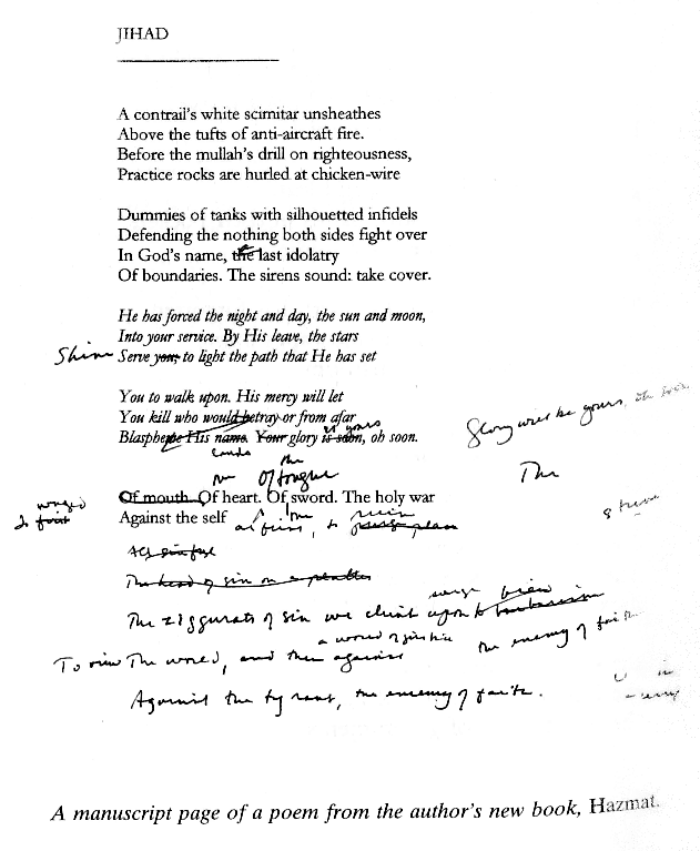 JIHAD
A contrail's white scimitar unsheathes
Above the tufts of anti-aircraft fire.
Before the mullah's drill on righteousness,
Practice rocks are hurled at chicken-wire
Dummies of tanks with silhouetted infidels
Defending the nothing both sides fight over
In God's name, the last idolatry
Of boundaries. The sirens sound: take cover.
He has forced the night and day, the sun and moon,
Into your service. By His leave, the stars
Shine Serve you, to light the path that He has set
You to walk upon. His mercy will let
You kill who would betray or from afar
is yours
Blaspheme His name. Your glory is soon, oh soon.
Glory will be yours, oh soon
The
the
Of tongue
Of mouth. Of heart. Of sword. The holy war
waged
Against the self at first, to
ruin
The head of sin on a platter
The ziggurats of sin we climb upon to
To view the world, and then against
the enemy of faith
Against the tyrant, the enemy of faith.
A manuscript page of a poem from the author's new book, Hazmat.